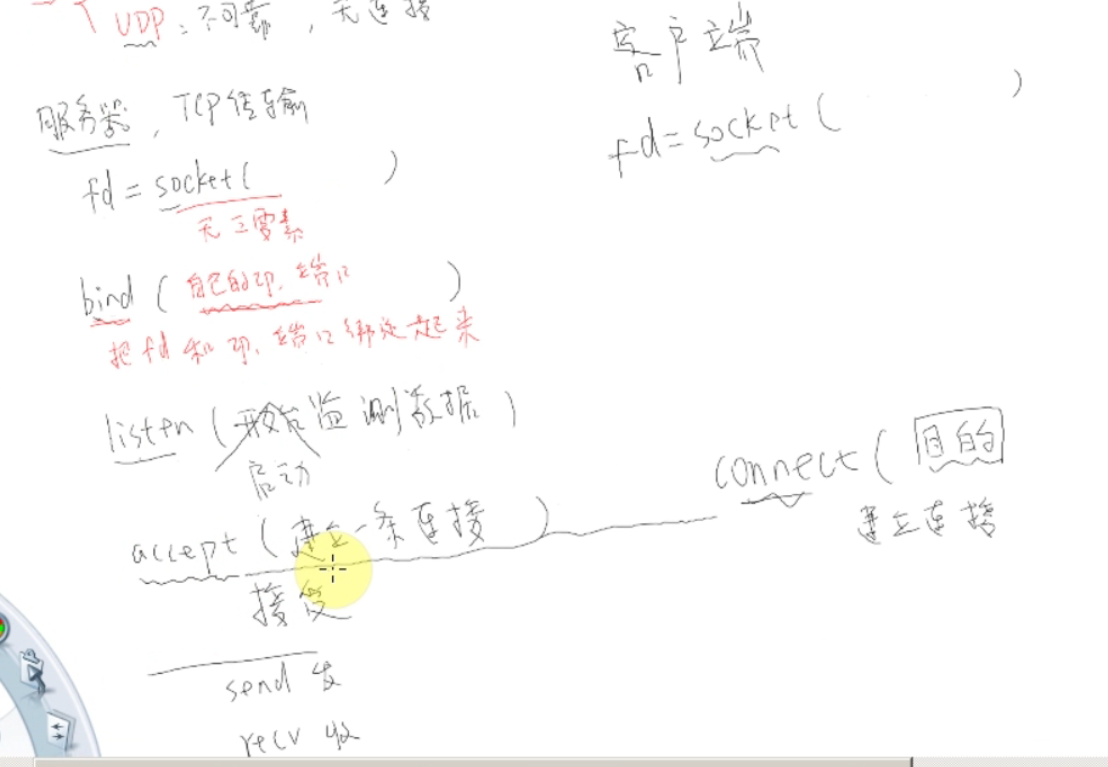 UDP：不可靠，无连接
服务器，TCP传输
fd = socket( )
无三要素
bind ( 自己的IP，端口 )
把fd和IP，端口绑定起来
listen (开始监测数据 )
启动
accept (建立一条连接 )
接受
send 发
recv 收
客户端
fd = socket ( )
connect ( 目的
建立连接